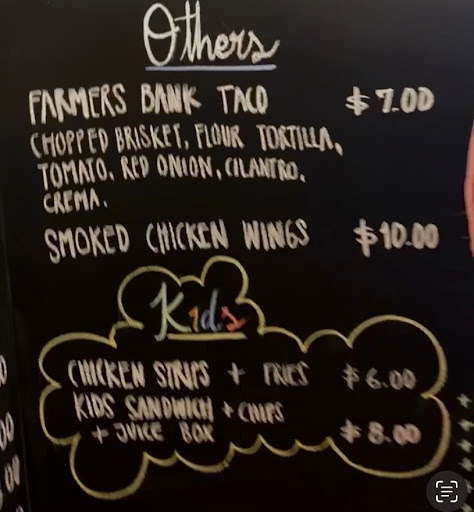 Others
FARMERS BANK TACO $7.00
CHOPPED BRISKET, FLOUR TORTILLA,
TOMATO, RED ONION, CILANTRO,
CREMA.
SMOKED CHICKEN WINGS $10.00
Kids
CHICKEN STRIPS + FRIES $6.00
KIDS SANDWICH + CHIPS
+ JUICE BOX $8.00